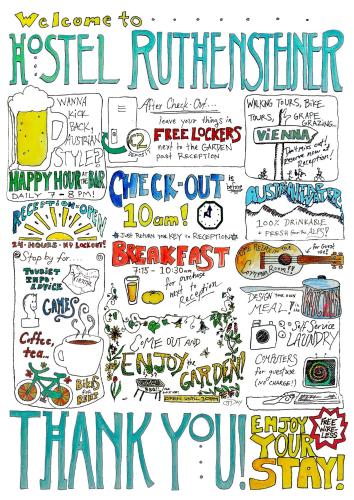 Welcome to
HOSTEL RUTHENSTEINER
WANNA
KICK
BACK,
AUSTRIAN
STYLE?
HAPPY HOUR @ BAR
DAILY 7-8PM!
After Check-Out...
leave your things in
FREE LOCKERS
next to the GARDEN
past RECEPTION
€2
WALKING TOURS, BIKE
TOURS, & GRAPE
GRAZING...
VIENNA
Don't miss out!
reserve now @
Reception!
RECEPTION OPEN
24-HOURS - NO LOCKOUT!
CHECK-OUT
is before
10am!
JUST RETURN the KEY to RECEPTION
100% DRINKABLE
& FRESH from the ALPS!
Stop by for...
TOURIST
INFO &
ADVICE
GAMES
Coffee,
tea...
BIKES
to
RENT
BREAKFAST
7:15 - 10:30am
for purchase
next to
Reception
COME OUT AND
ENJOY
the GARDEN!
OPEN UNTIL 10PM
for guest use!
DESIGN YOUR OWN
MEAL!
Self Service
LAUNDRY
COMPUTERS
for guest use
(NO CHARGE!)
THANK YOU!
ENJOY
YOUR
STAY!
FREE
WIRE-
LESS